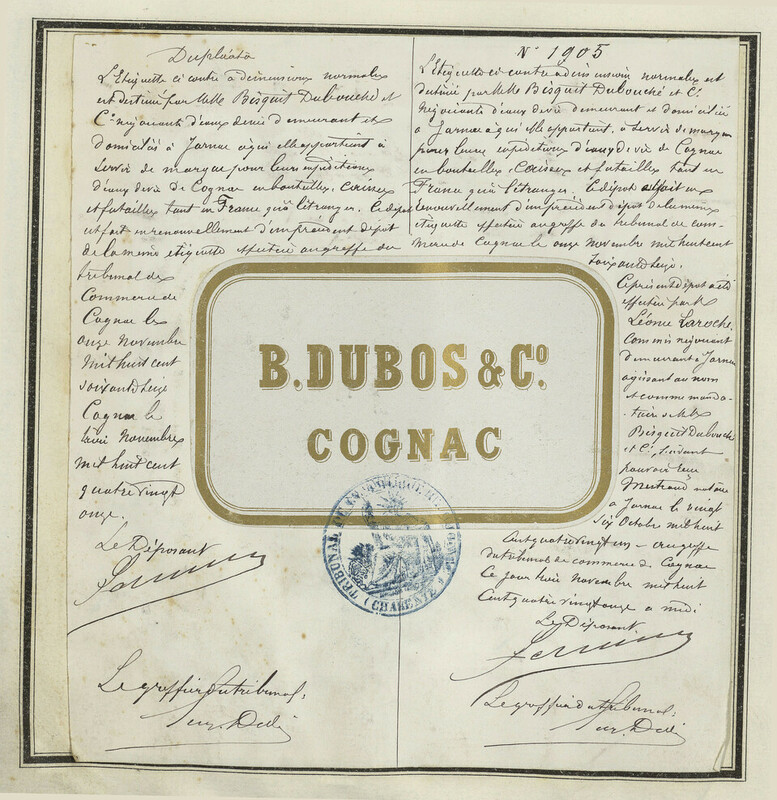 Duplicata
L'Etiquette ci contre à dimensions normales
est destinée par MM Bisquit Dubouché et
Cie négociants d'eaux de vie demeurant et
domiciliés à Jarnac à qui elle appartient à
servir de marque pour leurs expéditions
d'eaux de vie de Cognac en bouteilles, caisses
et futailles tant en France qu'à l'étranger. Ce dépôt
est fait en renouvellement d'un précédent dépôt
de la même étiquette effectué au greffe du
tribunal de
Commerce de
Cognac le
onze Novembre
mil huit cent
soixante seize
Cognac le
trois Novembre
mil huit cent
quatre vingt
onze.
Le Déposant
Le greffier du tribunal,
N° 1905
L'Etiquette ci contre à dimension normales est
destinée par MM Bisquit Dubouché et Cie
négociants d'eaux de vie demeurant et domiciliés
à Jarnac à qui elle appartient, à servir de marque
pour leurs expéditions d'eaux de vie de Cognac
en bouteilles, caisses et futailles tant en
France qu'à l'étranger. Ce dépôt est fait en
renouvellement d'un précédent dépôt de la même
étiquette effectué au greffe du tribunal de com-
merce de Cognac le onze Novembre mil huit cent
soixante seize.
Ce présent dépôt a été
effectué par M
Léonce Laroche
Commis négociant
demeurant à Jarnac
agissant au nom
et comme manda-
taire de MM
Bisquit Dubouché
et Cie, suivant
pouvoir reçu
Mertraud notaire
à Jarnac le vingt
six Octobre mil huit
Cent quatre vingt un - au greffe
du tribunal de commerce de Cognac
Ce jour trois Novembre mil huit
Cent quatre vingt onze à midi
Le Déposant
Le greffier du tribunal,
B. DUBOS & Co.
COGNAC
TRIBUNAL DE COMMERCE DE COGNAC
(CHARENTE)